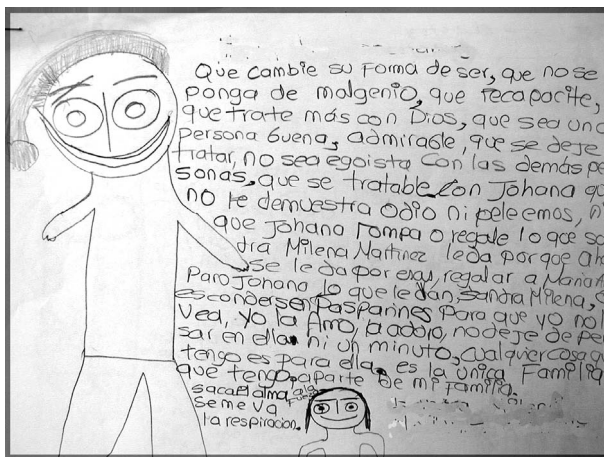 Que cambie su Forma de ser, que no se
ponga de malgenio, que recapacite,
que trate más con Dios, que sea una
persona buena, admirable, que se deje
tratar, no sea egoista con las demás pe
sonas, que se tratable con Johana qu
no le demuestra odio ni peleemos,
que Johana rompa o regale lo que sa
dra Milena Martinez le da por que aho
se le da por esas, regalar a Maria
Paro Johana lo que le dan, sandra Milena,
escondersen Pasparines para que yo no l
vea, yo la Amo, la adoro, no deje de pe
sar en ella ni un minuto, cualquier cosa q
tengo es para ella, es la única Familia
que tengo, aparte de mi familia.
saca el alma, a la
Fuerza
se me va
la respiracion.